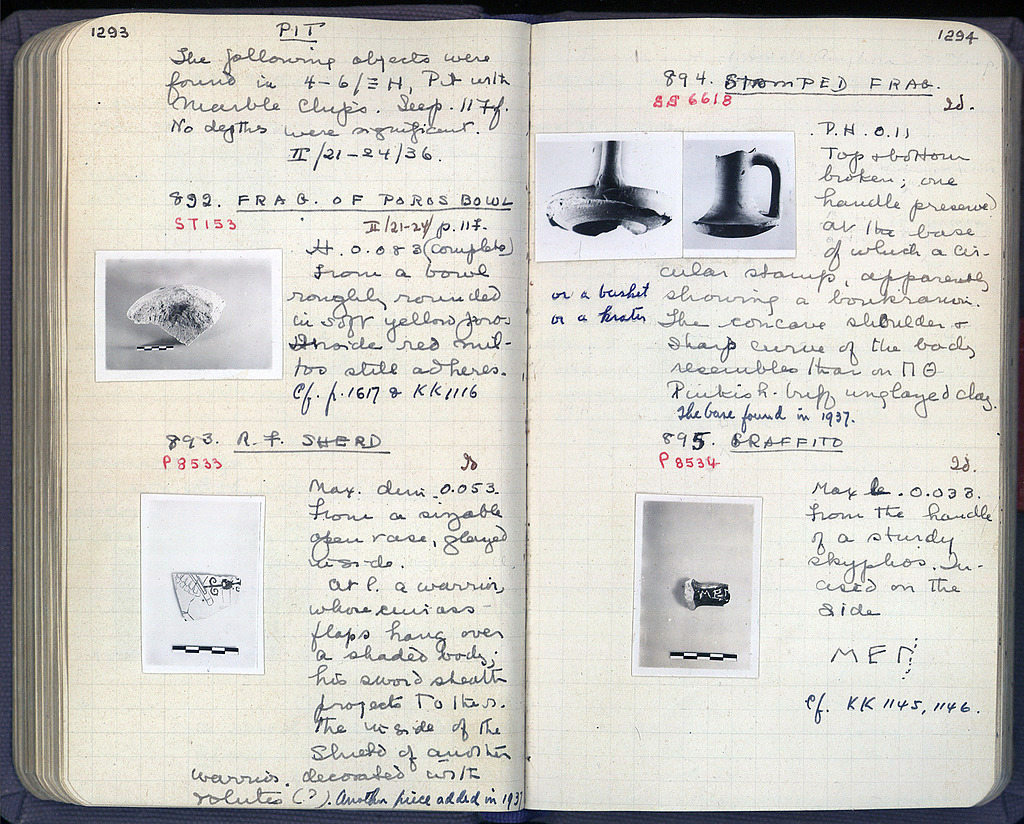 1293
PIT
The following objects were
found in 4-6/ΞH, Pit with
Marble Chips. See p. 117f.
No depths were significant.
II/21-24/36.
892. FRAG. OF POROS BOWL
ST 153
II/21-24/ p. 117.
H. 0.083 (complete)
From a bowl
roughly rounded
in soft yellow poros
Inside red mil-
tos still adheres.
Cf. p. 1617 & KK 1116
893. R.F. SHERD
P 8533
2d
Max. dim. 0.053.
From a sizable
open vase, glazed
inside.
At l. a warrior,
whose cuirass
flaps hang over
a shaded body;
his sword sheath
projects to the r.
The inside of the
shield of another
warrior, decorated with
volutes (?). Another piece added in 1937
1294
894. STAMPED FRAG.
SS 6618
2d.
P.H. 0.11
Top & bottom
broken; one
handle preserved
at the base
of which a cir-
cular stamp, apparently
or a basket
showing a boukranion.
or a krater
The concave shoulder &
sharp curve of the body
resembles that on ΠΘ
Pinkish-buff unglazed clay.
The base found in 1937.
895. GRAFFITO
P 8534
2d.
Max le. 0.033.
From the handle
of a sturdy
skyphos. In-
cised on the
side
ΜΕΓ
Cf. KK 1145, 1146.